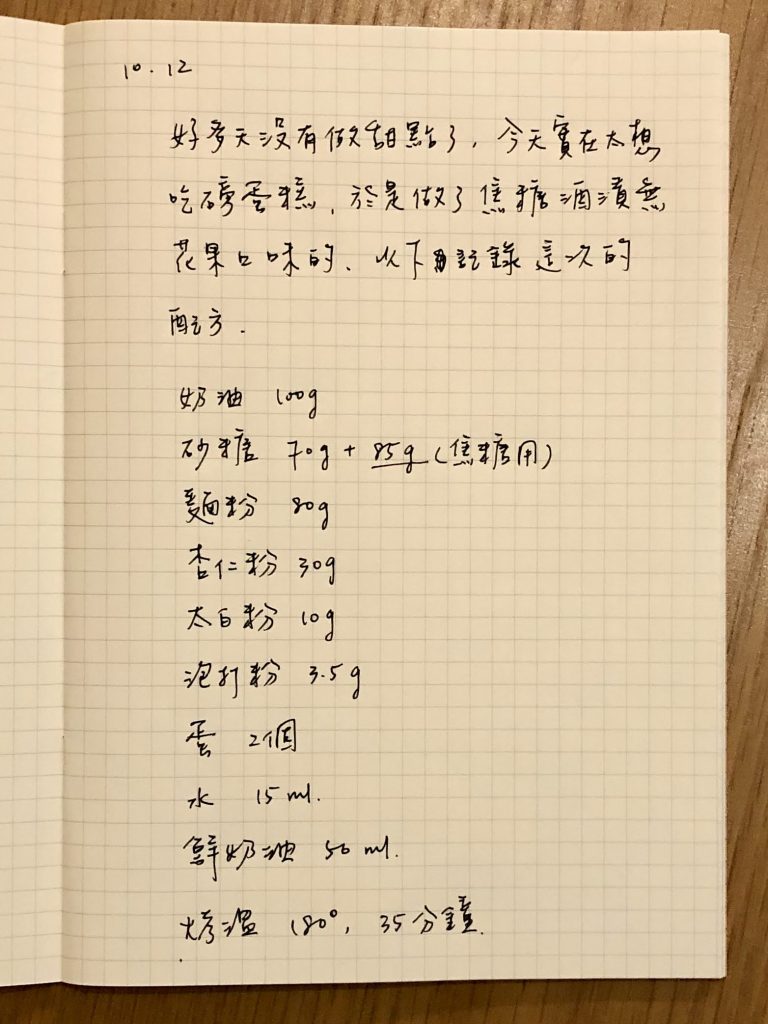 10.12
好多天沒有做甜點了，今天實在太想
吃磅蛋糕，於是做了焦糖酒漬無
花果口味的、以下記錄這次的
配方．
奶油 100g
砂糖 70g + 85g (焦糖用)
麵粉 80g
杏仁粉 30g
太白粉 10g
泡打粉 3.5g
蛋 2個
水 15 ml.
鮮奶油 50 ml.
烤溫 180°, 35分鐘.